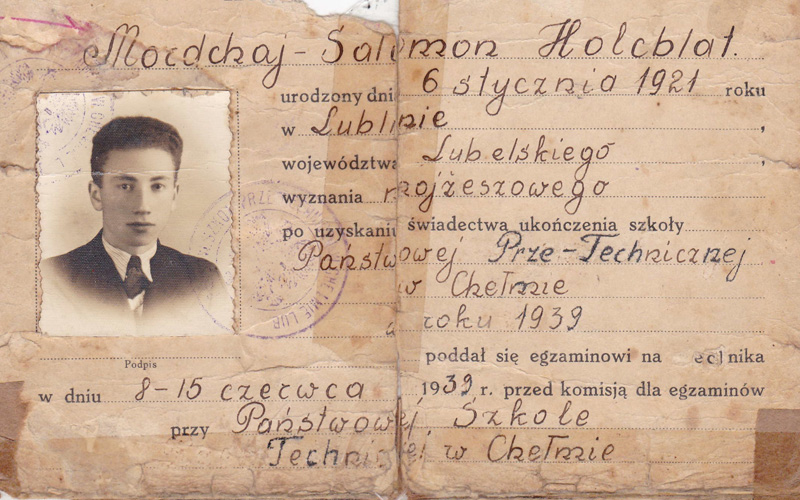 Mordchaj - Salomon Holcblat.
urodzony dnia 6 stycznia 1921 roku
w Lublinie,
województwa Lubelskiego,
wyznania mojżeszowego
po uzyskaniu świadectwa ukończenia szkoły
Państwowej Prze-Technicznej
w Chełmie
roku 1939
Podpis
poddał się egzaminowi na
w dniu 8-15 czerwca 1939 r. przed komisją dla egzaminów
przy Państwowej Szkole
Technicznej w Chełmie